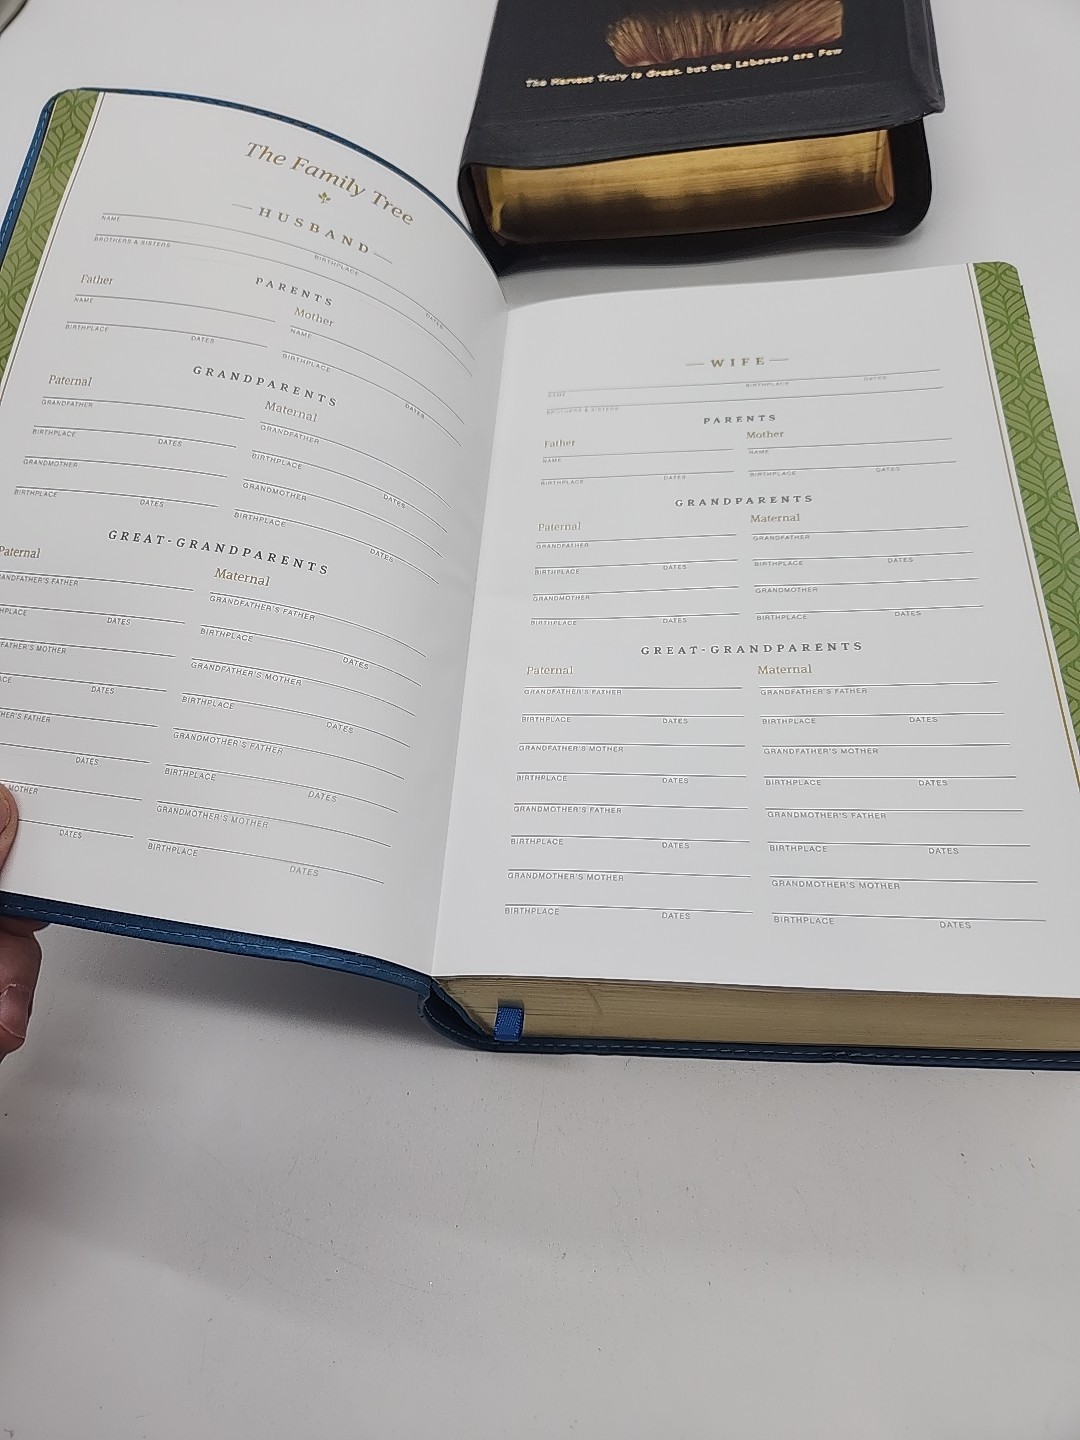 The Harvest Truly is Great, but the Laborers are Few
The Family Tree
HUSBAND
NAME BIRTHPLACE DATES
BROTHERS & SISTERS
PARENTS
Father Mother
NAME NAME
BIRTHPLACE DATES BIRTHPLACE DATES
GRANDPARENTS
Paternal Maternal
GRANDFATHER GRANDFATHER
BIRTHPLACE DATES BIRTHPLACE DATES
GRANDMOTHER GRANDMOTHER
BIRTHPLACE DATES BIRTHPLACE DATES
GREAT-GRANDPARENTS
Paternal Maternal
ANDFATHER'S FATHER GRANDFATHER'S FATHER
HPLACE DATES BIRTHPLACE DATES
FATHER'S MOTHER GRANDFATHER'S MOTHER
CE DATES BIRTHPLACE DATES
HER'S FATHER GRANDMOTHER'S FATHER
DATES BIRTHPLACE DATES
MOTHER GRANDMOTHER'S MOTHER
DATES BIRTHPLACE DATES
WIFE
NAME BIRTHPLACE DATES
BROTHERS & SISTERS
PARENTS
Father Mother
NAME NAME
BIRTHPLACE DATES BIRTHPLACE DATES
GRANDPARENTS
Paternal Maternal
GRANDFATHER GRANDFATHER
BIRTHPLACE DATES BIRTHPLACE DATES
GRANDMOTHER GRANDMOTHER
BIRTHPLACE DATES BIRTHPLACE DATES
GREAT-GRANDPARENTS
Paternal Maternal
GRANDFATHER'S FATHER GRANDFATHER'S FATHER
BIRTHPLACE DATES BIRTHPLACE DATES
GRANDFATHER'S MOTHER GRANDFATHER'S MOTHER
BIRTHPLACE DATES BIRTHPLACE DATES
GRANDMOTHER'S FATHER GRANDMOTHER'S FATHER
BIRTHPLACE DATES BIRTHPLACE DATES
GRANDMOTHER'S MOTHER GRANDMOTHER'S MOTHER
BIRTHPLACE DATES BIRTHPLACE DATES